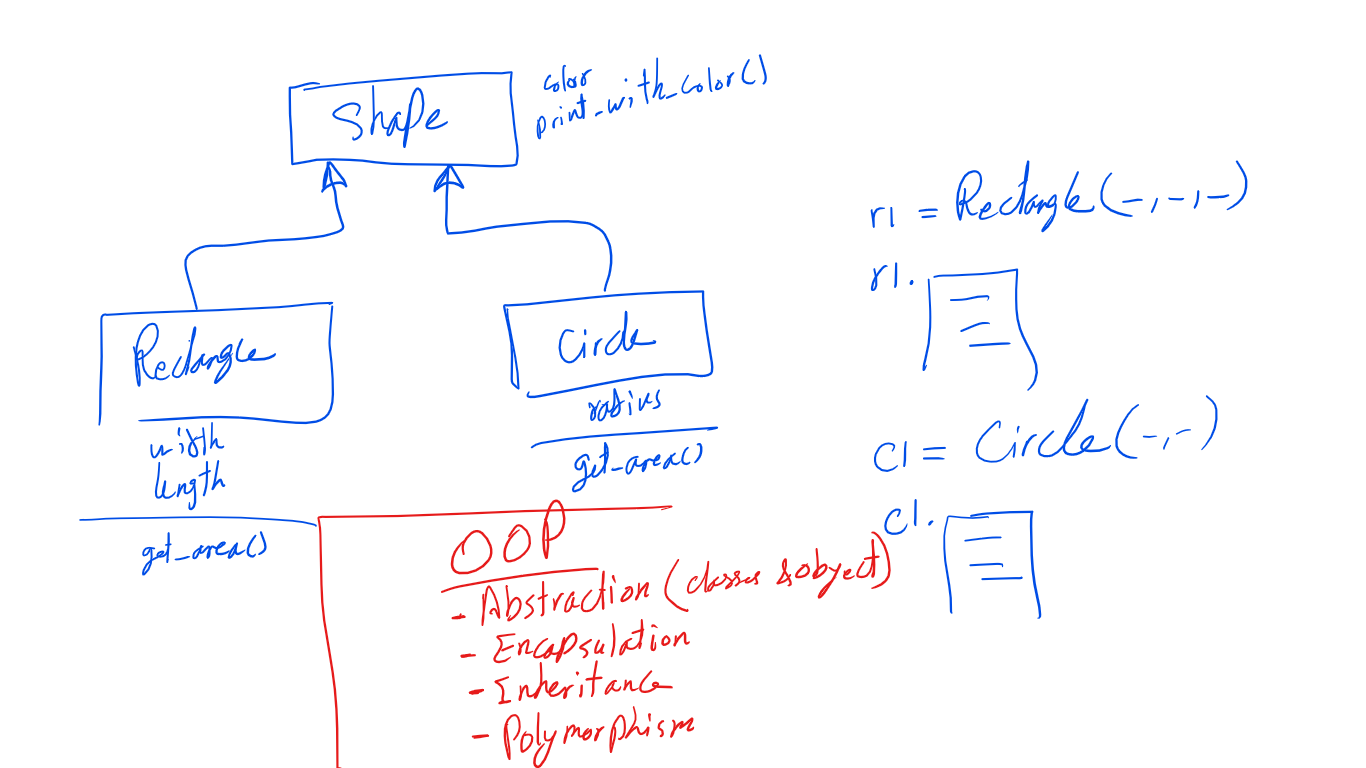 Shape
color
print_with_color()
Rectangle
width
length
get_area()
Circle
radius
get_area()
r1 = Rectangle(-,-,-)
r1.
C1 = Circle(-,-)
C1.
OOP
- Abstraction (classes & object)
- Encapsulation
- Inheritance
- Polymorphism